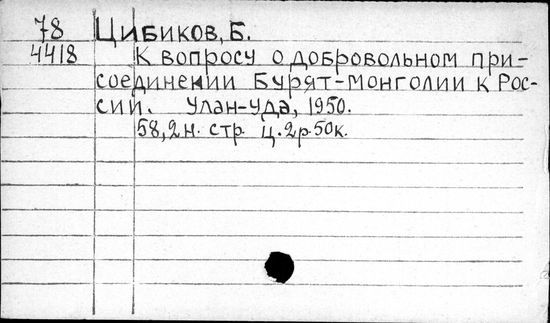 78 Цибиков, Б.
4418 К вопросу о добровольном при-
соединении Бурят-Монголии к Рос-
сии. Улан-Удэ, 1950.
58,2 н. стр. ц. 2р.50к.